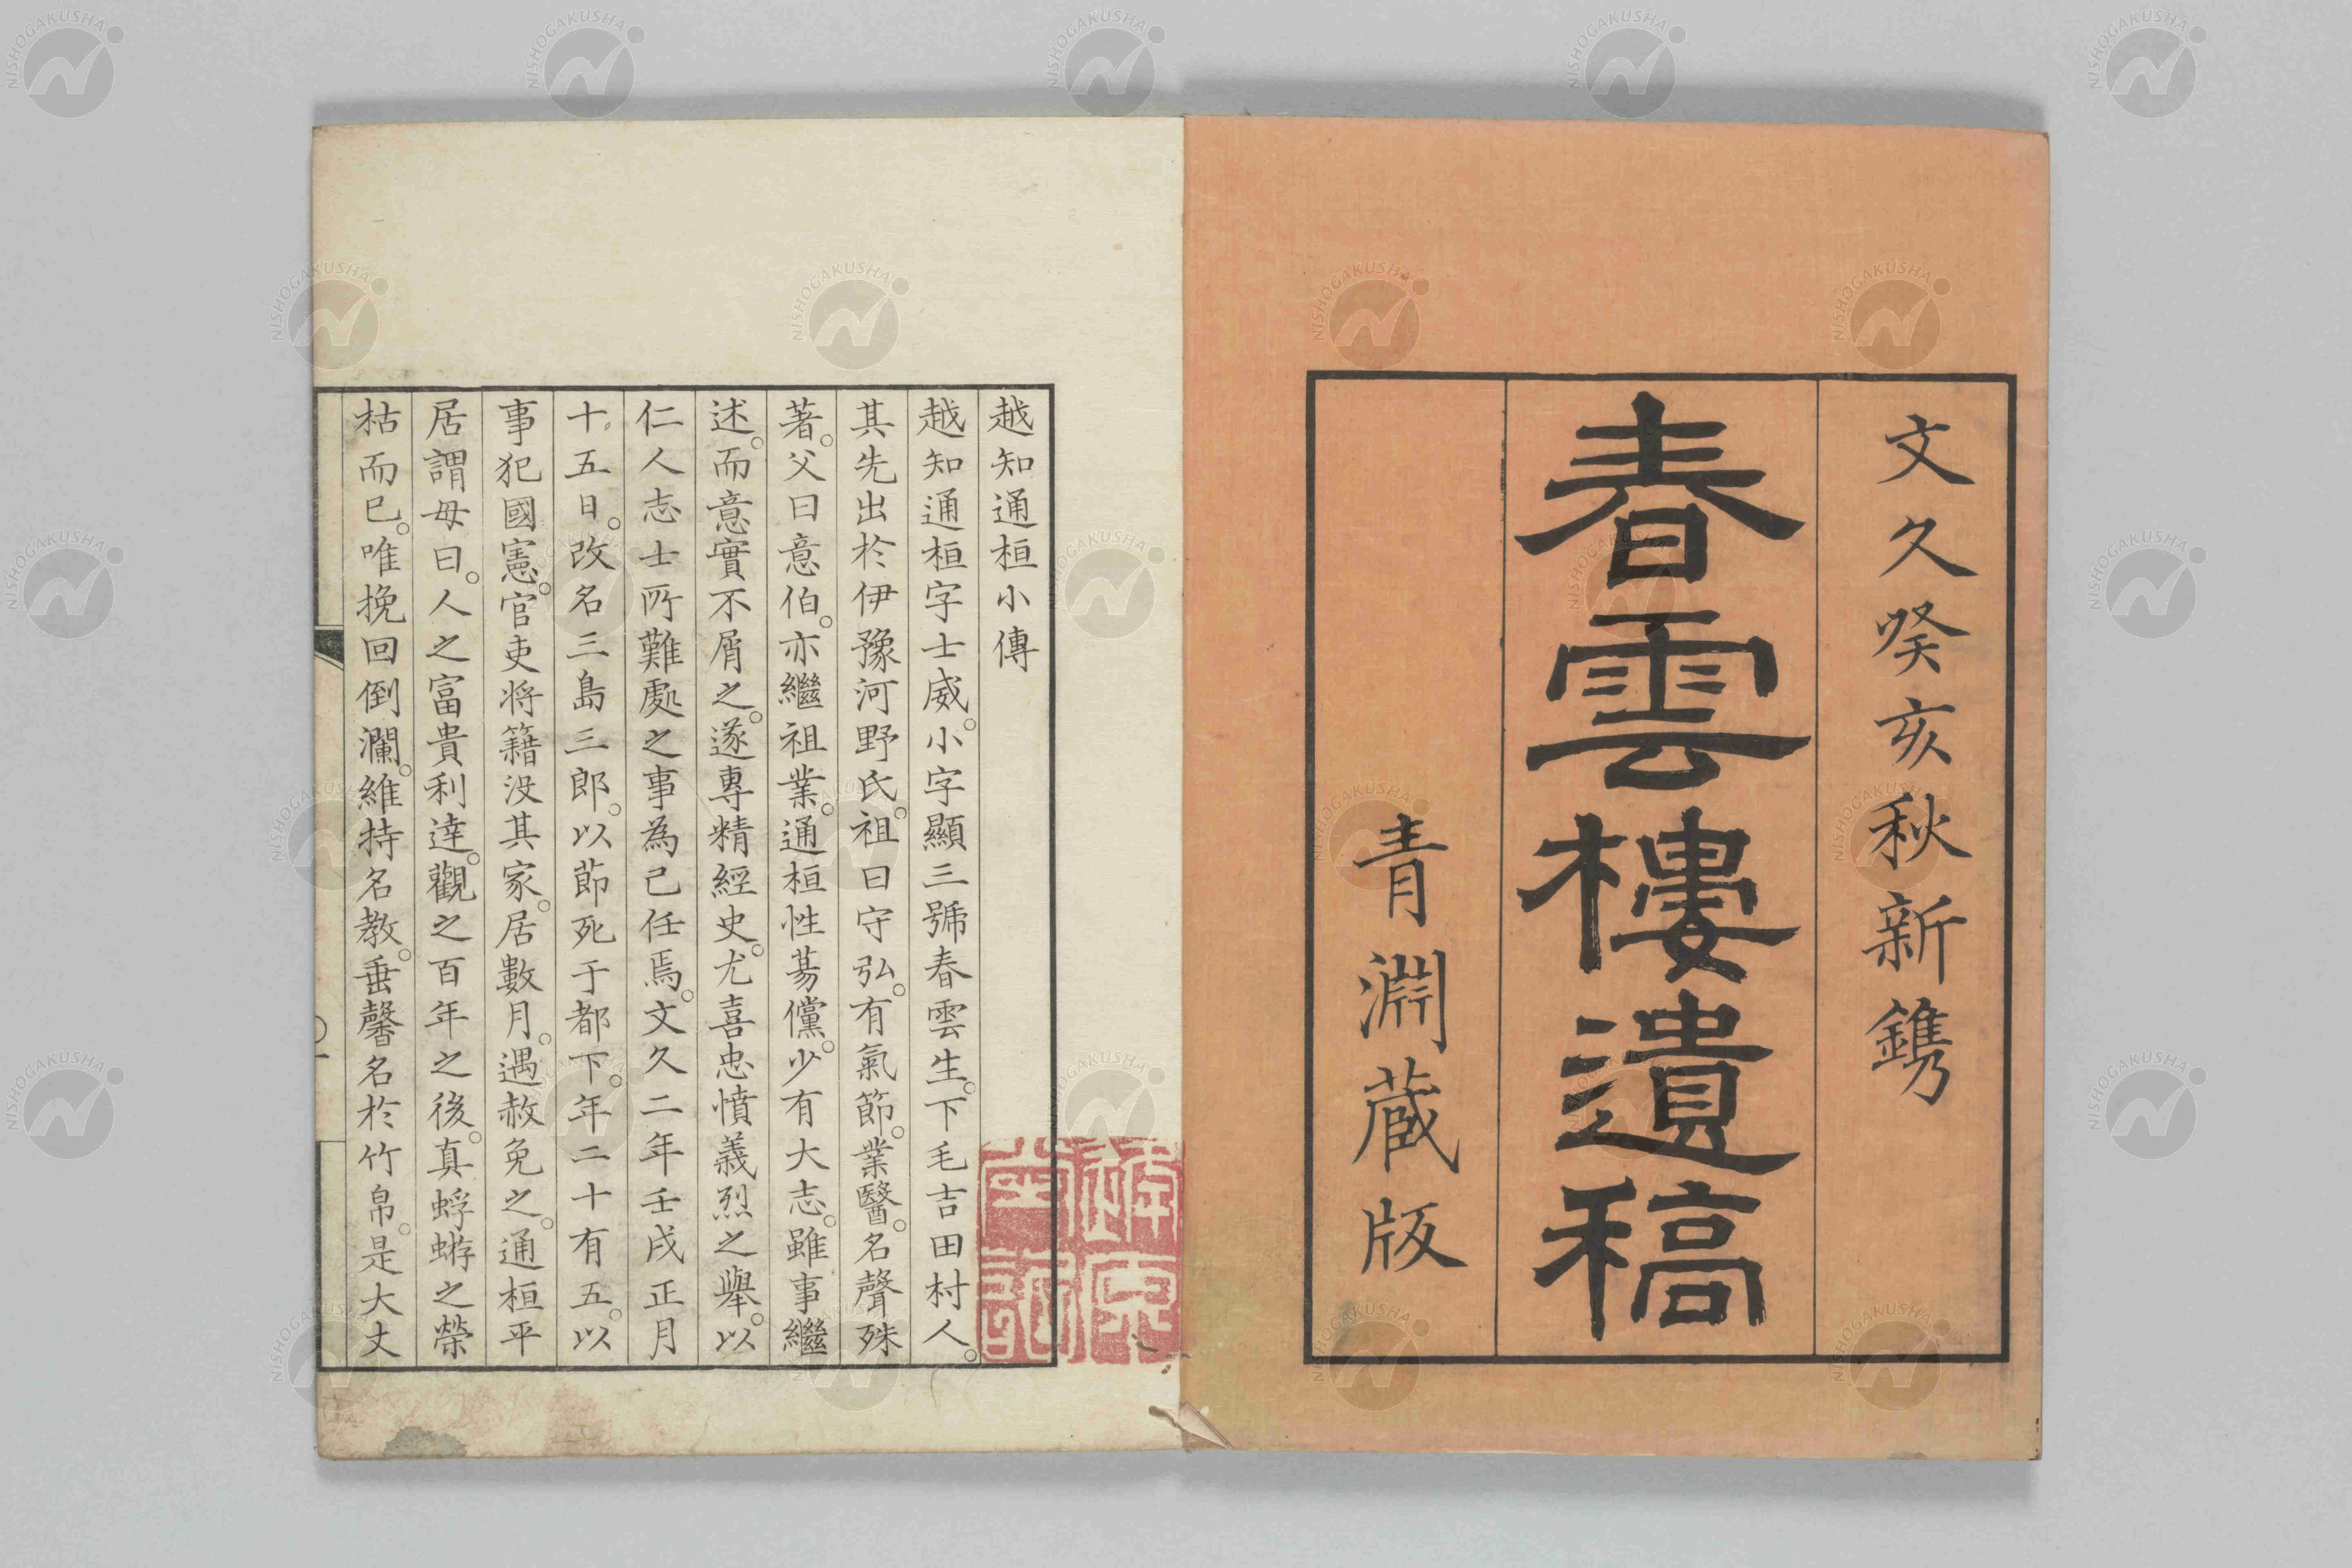 文久癸亥秋新鐫
春雲樓遺稿
青淵蔵版
越知通桓小傳
越知通桓字士威。小字顯三號春雲生。下毛吉田村人。
其先出於伊豫河野氏。祖曰守弘。有氣節。業醫。名聲殊
著。父曰意伯。亦繼祖業。通桓性蕩儻。少有大志。雖事繼
述。而意實不屑之。遂專精經史。尤喜忠憤義烈之舉。以
仁人志士所難處之事為己任焉。文久二年壬戌正月
十五日。改名三島三郎。以節死于都下。年二十有五。以
事犯國憲。官吏将籍没其家。居數月。遇赦免之。通桓平
居謂母曰。人之富貴利達。觀之百年之後。真蜉蝣之榮
枯而已。唯挽回倒瀾。維持名教。垂馨名於竹帛。是大丈
NISHOGAKUSHA